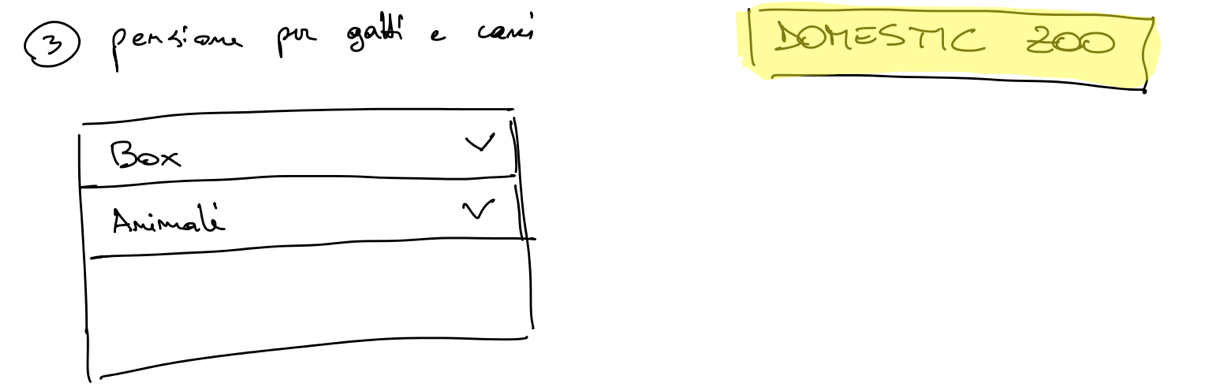 3 pensione per gatti e cani
DOMESTIC ZOO
Box
Animali